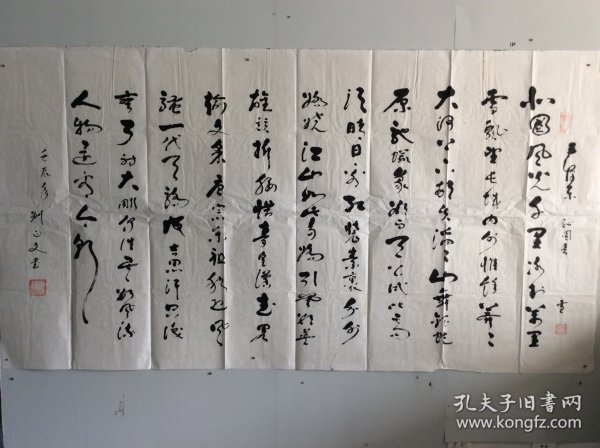 毛泽东 沁园春 雪
北國風光千里冰封萬里
雪飄望长城内外惟餘莽々
大河上下顿失滔々山舞银蛇
原驰蜡象欲与天公试比高
须晴日看红装素裹分外
妖娆江山如此多娇引无数英
雄竞折腰惜秦皇汉武略
输文采唐宗宋祖稍逊风
骚一代天骄成吉思汗只识
弯弓射大雕俱往矣数风流
人物还看今朝
壬辰年 刘文书
孔夫子旧书网
www.kongfz.com